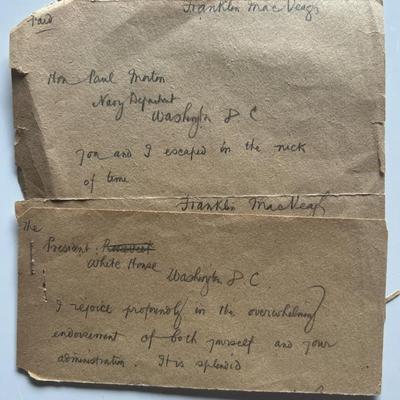 Paid
Franklin MacVeagh
Hon Paul Morton
Navy Department
Washington D C
You and I escaped in the nick
of time
Franklin MacVeagh
The
President
White House
Washington D C
I rejoice profoundly in the overwhelming
endorsement of both yourself and your
administration. It is splendid